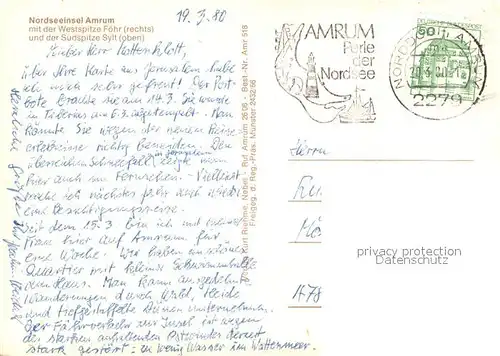 Nordseeinsel Amrum
mit der Westspitze Föhr (rechts)
und der Südspitze Sylt (oben)
19.3.80
Lieber Herr
über Ihre Karte aus Jerusalem habe
ich mich sehr gefreut. Der Post-
bote brachte sie am 14.3. Sie wurde
in am 6.3. abgestempelt. Man
könnte Sie wegen der neuen Reise-
erlebnisse richtig beneiden. Den
überreichen Schneefall in Jerusalem zeigte man
hier auch im Fernsehen. Vielleicht
mache ich nächstes Jahr auch wieder
eine Besichtigungsreise.
Seit dem 15.3 bin ich mit meiner
Frau hier auf Amrum für
eine Woche. Wir haben ein schönes
Quartier mit kleiner Schwimmhalle
im Haus. Man kann ausgedehnte
Wanderungen durch Wald, Heide
und tiefgestaffelte Dünen unternehmen.
Der Fährverkehr zur Insel ist wegen
des starken anhaltenden Ostwindes derzeit
stark gestört: zu wenig Wasser im Wattenmeer.
Herzliche Grüße Ihr
Verlag Kurt Riemme, Nebel - Ruf Amrum 2606 - Best.-Nr. Amr 518
Freigeg. d. Reg.-Präs. Münster 242/66
AMRUM
Perle
der
Nordsee
DEUTSCHE BUNDESPOST
50
NORDDORF AMRUM
2279
Herrn
privacy protection
Datenschutz